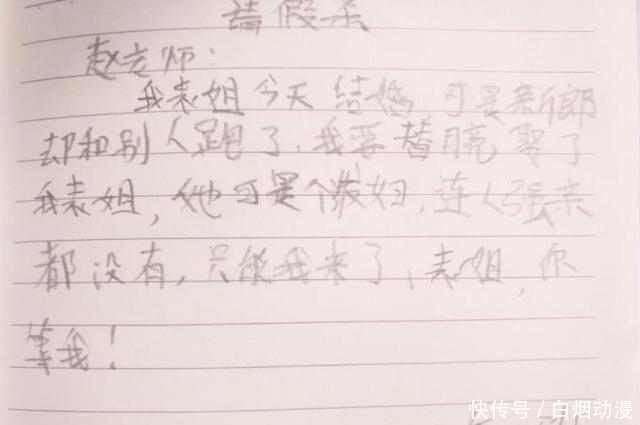 請假条
赵老师：
我表姐今天结婚可是新郎
却和别人跑了，我要替 娶了
我表姐，她可是个泼妇，连人强亲
都没有，只能我来了，表姐，你
等我！
快传号／白烟动漫